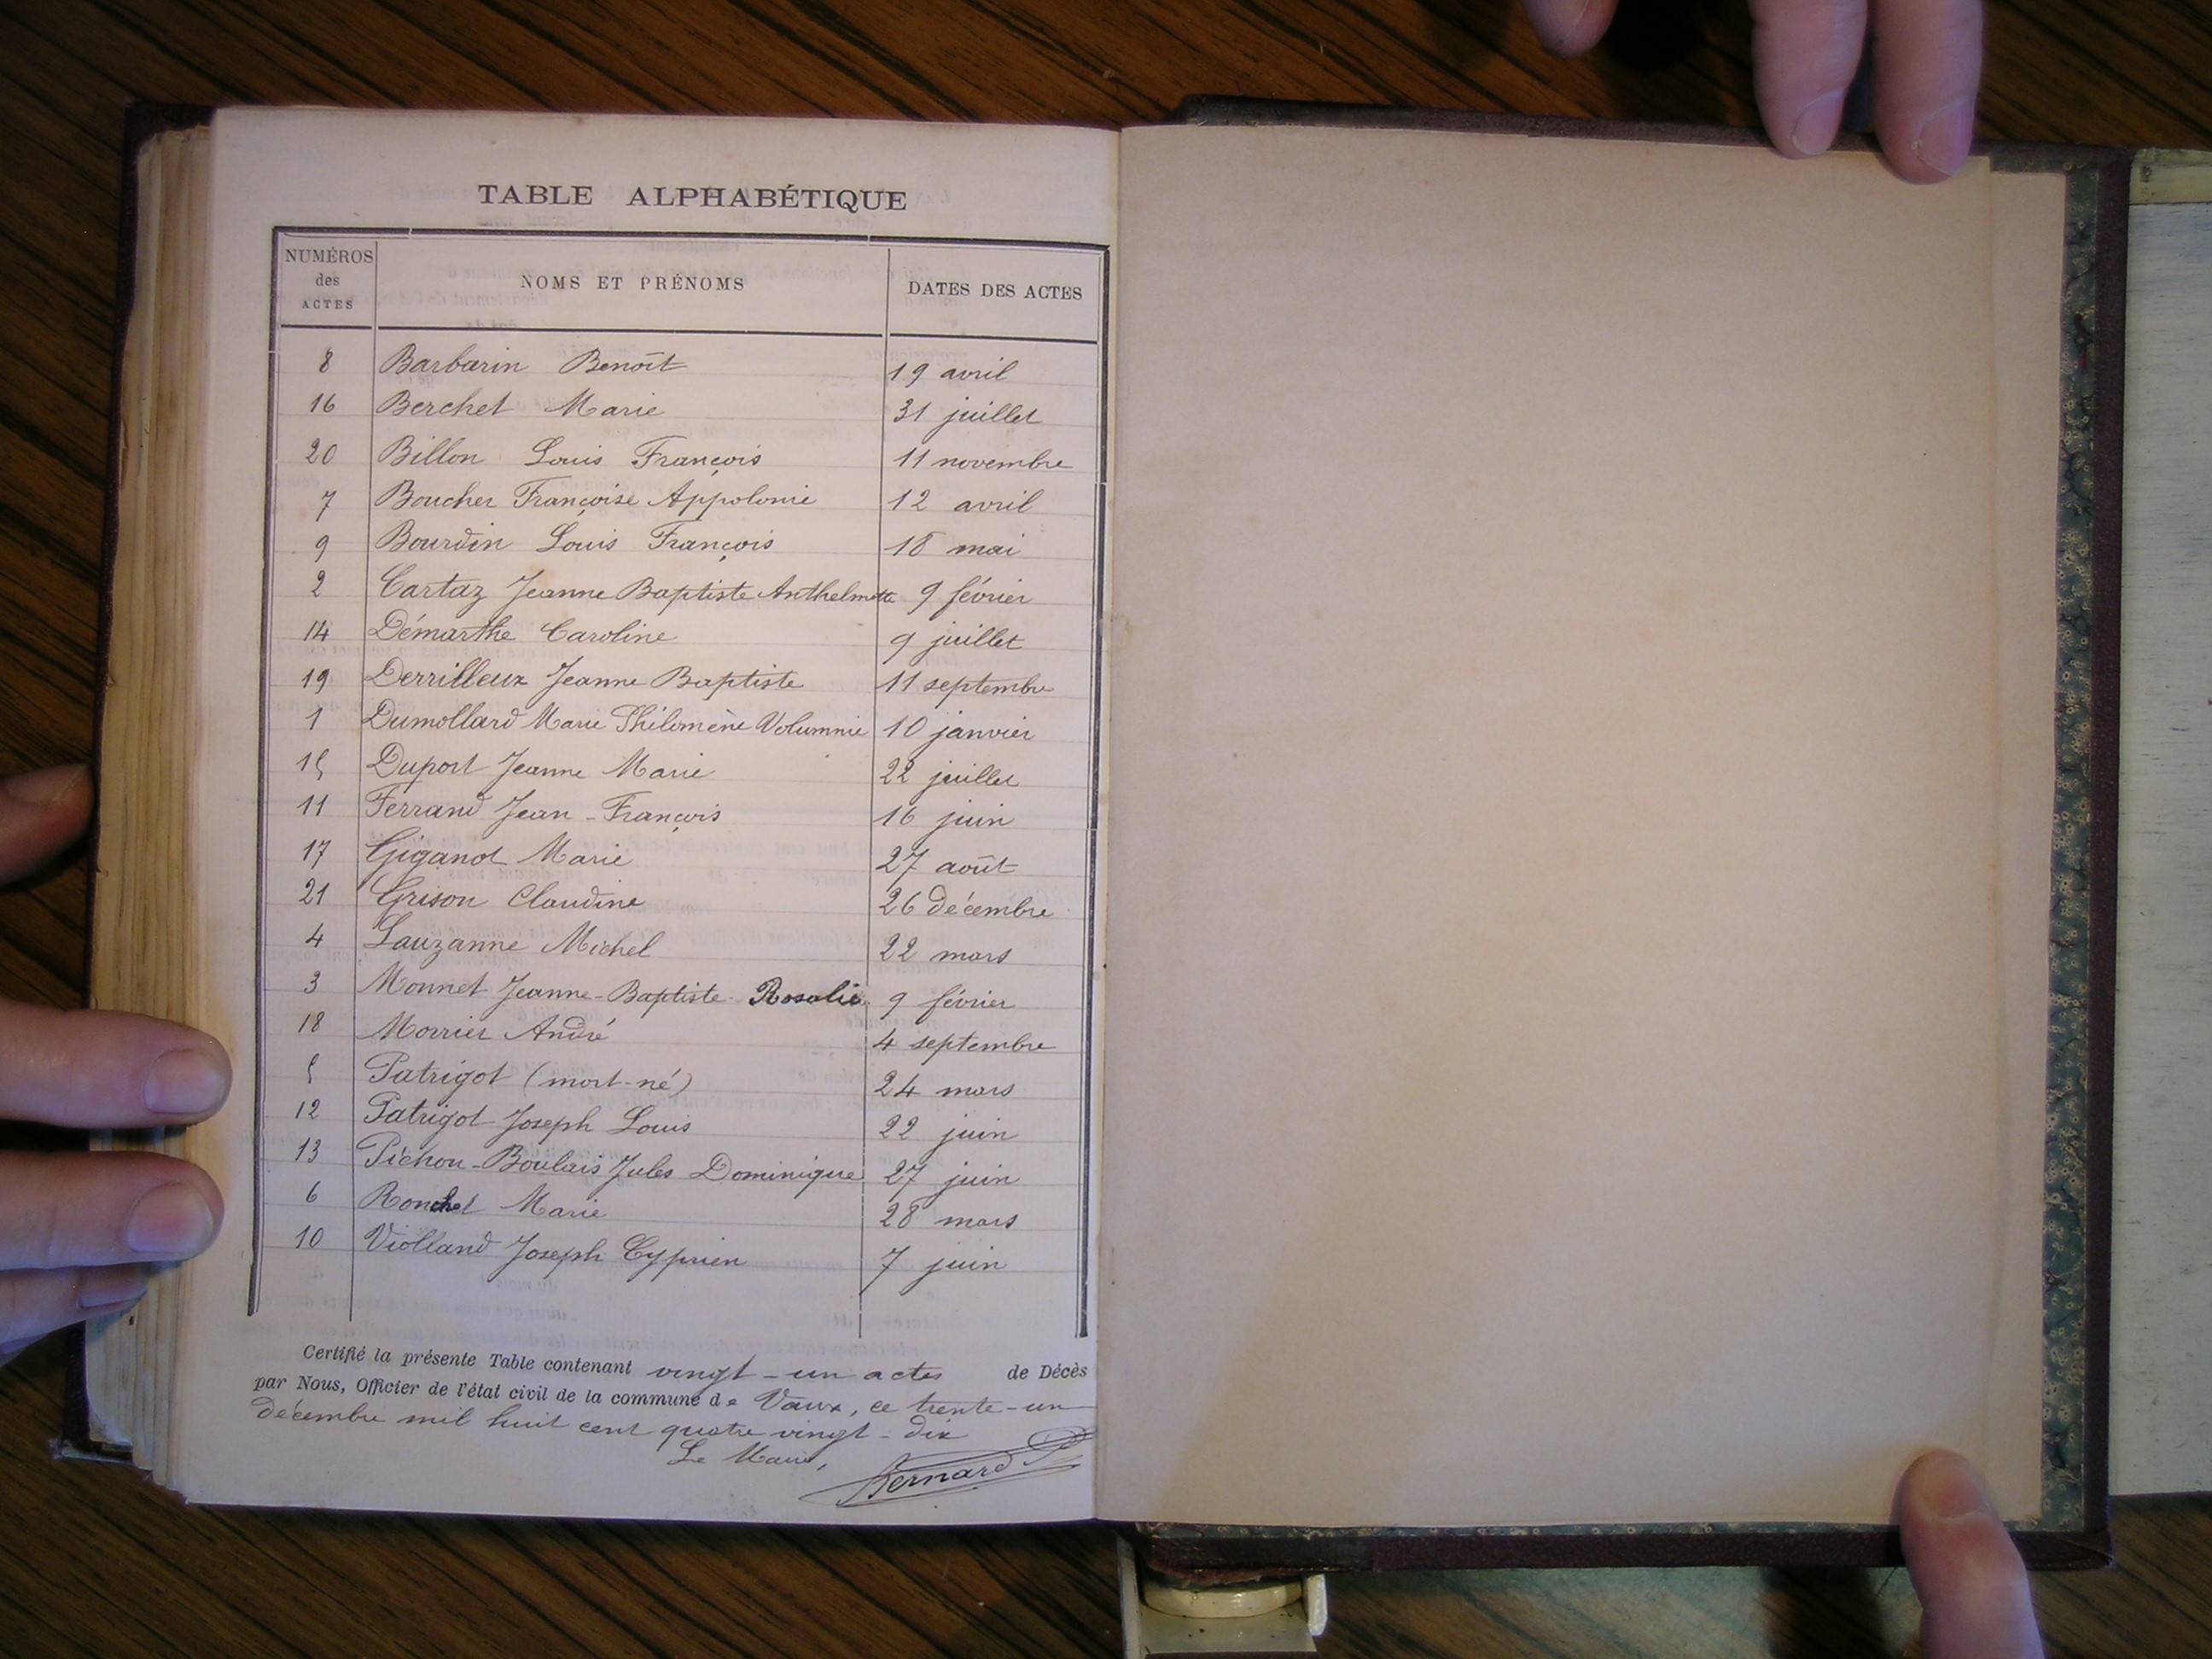 TABLE ALPHABÉTIQUE
NUMÉROS des ACTES NOMS ET PRÉNOMS DATES DES ACTES
8 Barbarin Benoît 19 avril
16 Berchet Marie 31 juillet
20 Billon Louis François 11 novembre
7 Boucher Françoise Appolonie 12 avril
9 Bourdin Louis François 18 mai
2 Cartaz Jeanne Baptiste Anthelmette 9 février
14 Démarthe Caroline 9 juillet
19 Derrilleux Jeanne Baptiste 11 septembre
1 Dumollard Marie Philomène Volumnie 10 janvier
15 Duport Jeanne Marie 22 juillet
11 Ferrand Jean-François 16 juin
17 Giganot Marie 27 août
21 Grison Claudine 26 décembre
4 Lauzanne Michel 22 mars
3 Monnet Jeanne-Baptiste-Rosalie 9 février
18 Morrier André 4 septembre
5 Patrigot (mort-né) 24 mars
12 Patrigot Joseph Louis 22 juin
13 Pichon-Boulais Jules Dominique 27 juin
6 Ronchet Marie 28 mars
10 Violland Joseph Cyprien 7 juin
Certifié la présente Table contenant vingt-un actes de Décès
par Nous, Officier de l'état civil de la commune de Vaux, ce trente-un
décembre mil huit cent quatre vingt-dix
Le Maire,
Bernard